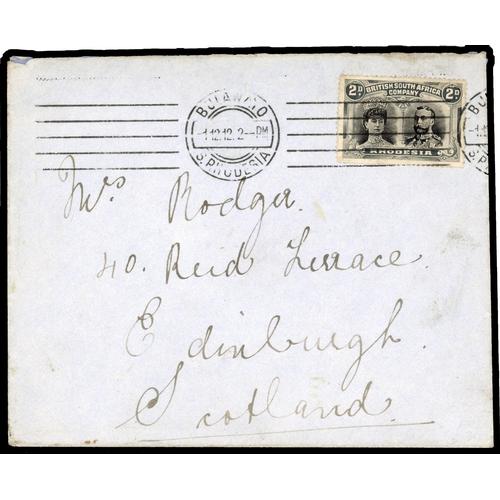 BULAWAYO
1.12.12.2-PM
S.RHODESIA
2D. BRITISH SOUTH AFRICA 2D.
COMPANY
RHODESIA
Mrs Rodger.
40. Reid Terrace.
Edinburgh.
Scotland.